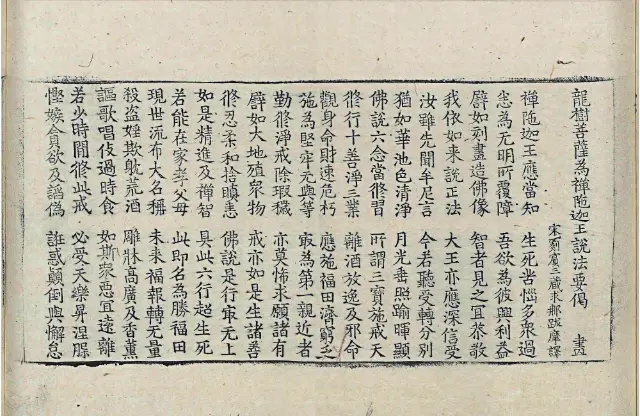 龍樹菩薩為禪陁迦王說法要偈 盡
宋罽賓三藏求那跋摩譯
禪陁迦王應當知 生死苦惱多衆過
悉為无明所覆障 吾欲為彼興利益
譬如刻畫造佛像 智者見之宜恭敬
我依如来說正法 大王亦應深信受
汝雖先聞牟尼言 今若聽受轉分別
猶如華池色清淨 月光垂照踰暉顯
佛說六念當修習 所謂三寶施戒天
修行十善淨三業 離酒放逸及邪命
觀身命財速危朽 應施福田濟窮乏
施為堅牢无與等 冣為第一親近者
勤修淨戒除瑕穢 亦莫悕求願諸有
譬如大地殖衆物 戒亦如是生諸善
修忍柔和捨瞋恚 佛說是行冣无上
如是精進及禪智 具此六行超生死
若能在家孝父母 此即名為勝福田
現世流布大名稱 未来福報轉无量
殺盜婬欺躭荒酒 雕牀高廣及香薰
謳歌唱伎過時食 如斯衆惡宜遠離
若少時間修此戒 必受天樂昇涅槃
慳嫉貪欲及諂偽 誑惑顛倒與懈怠